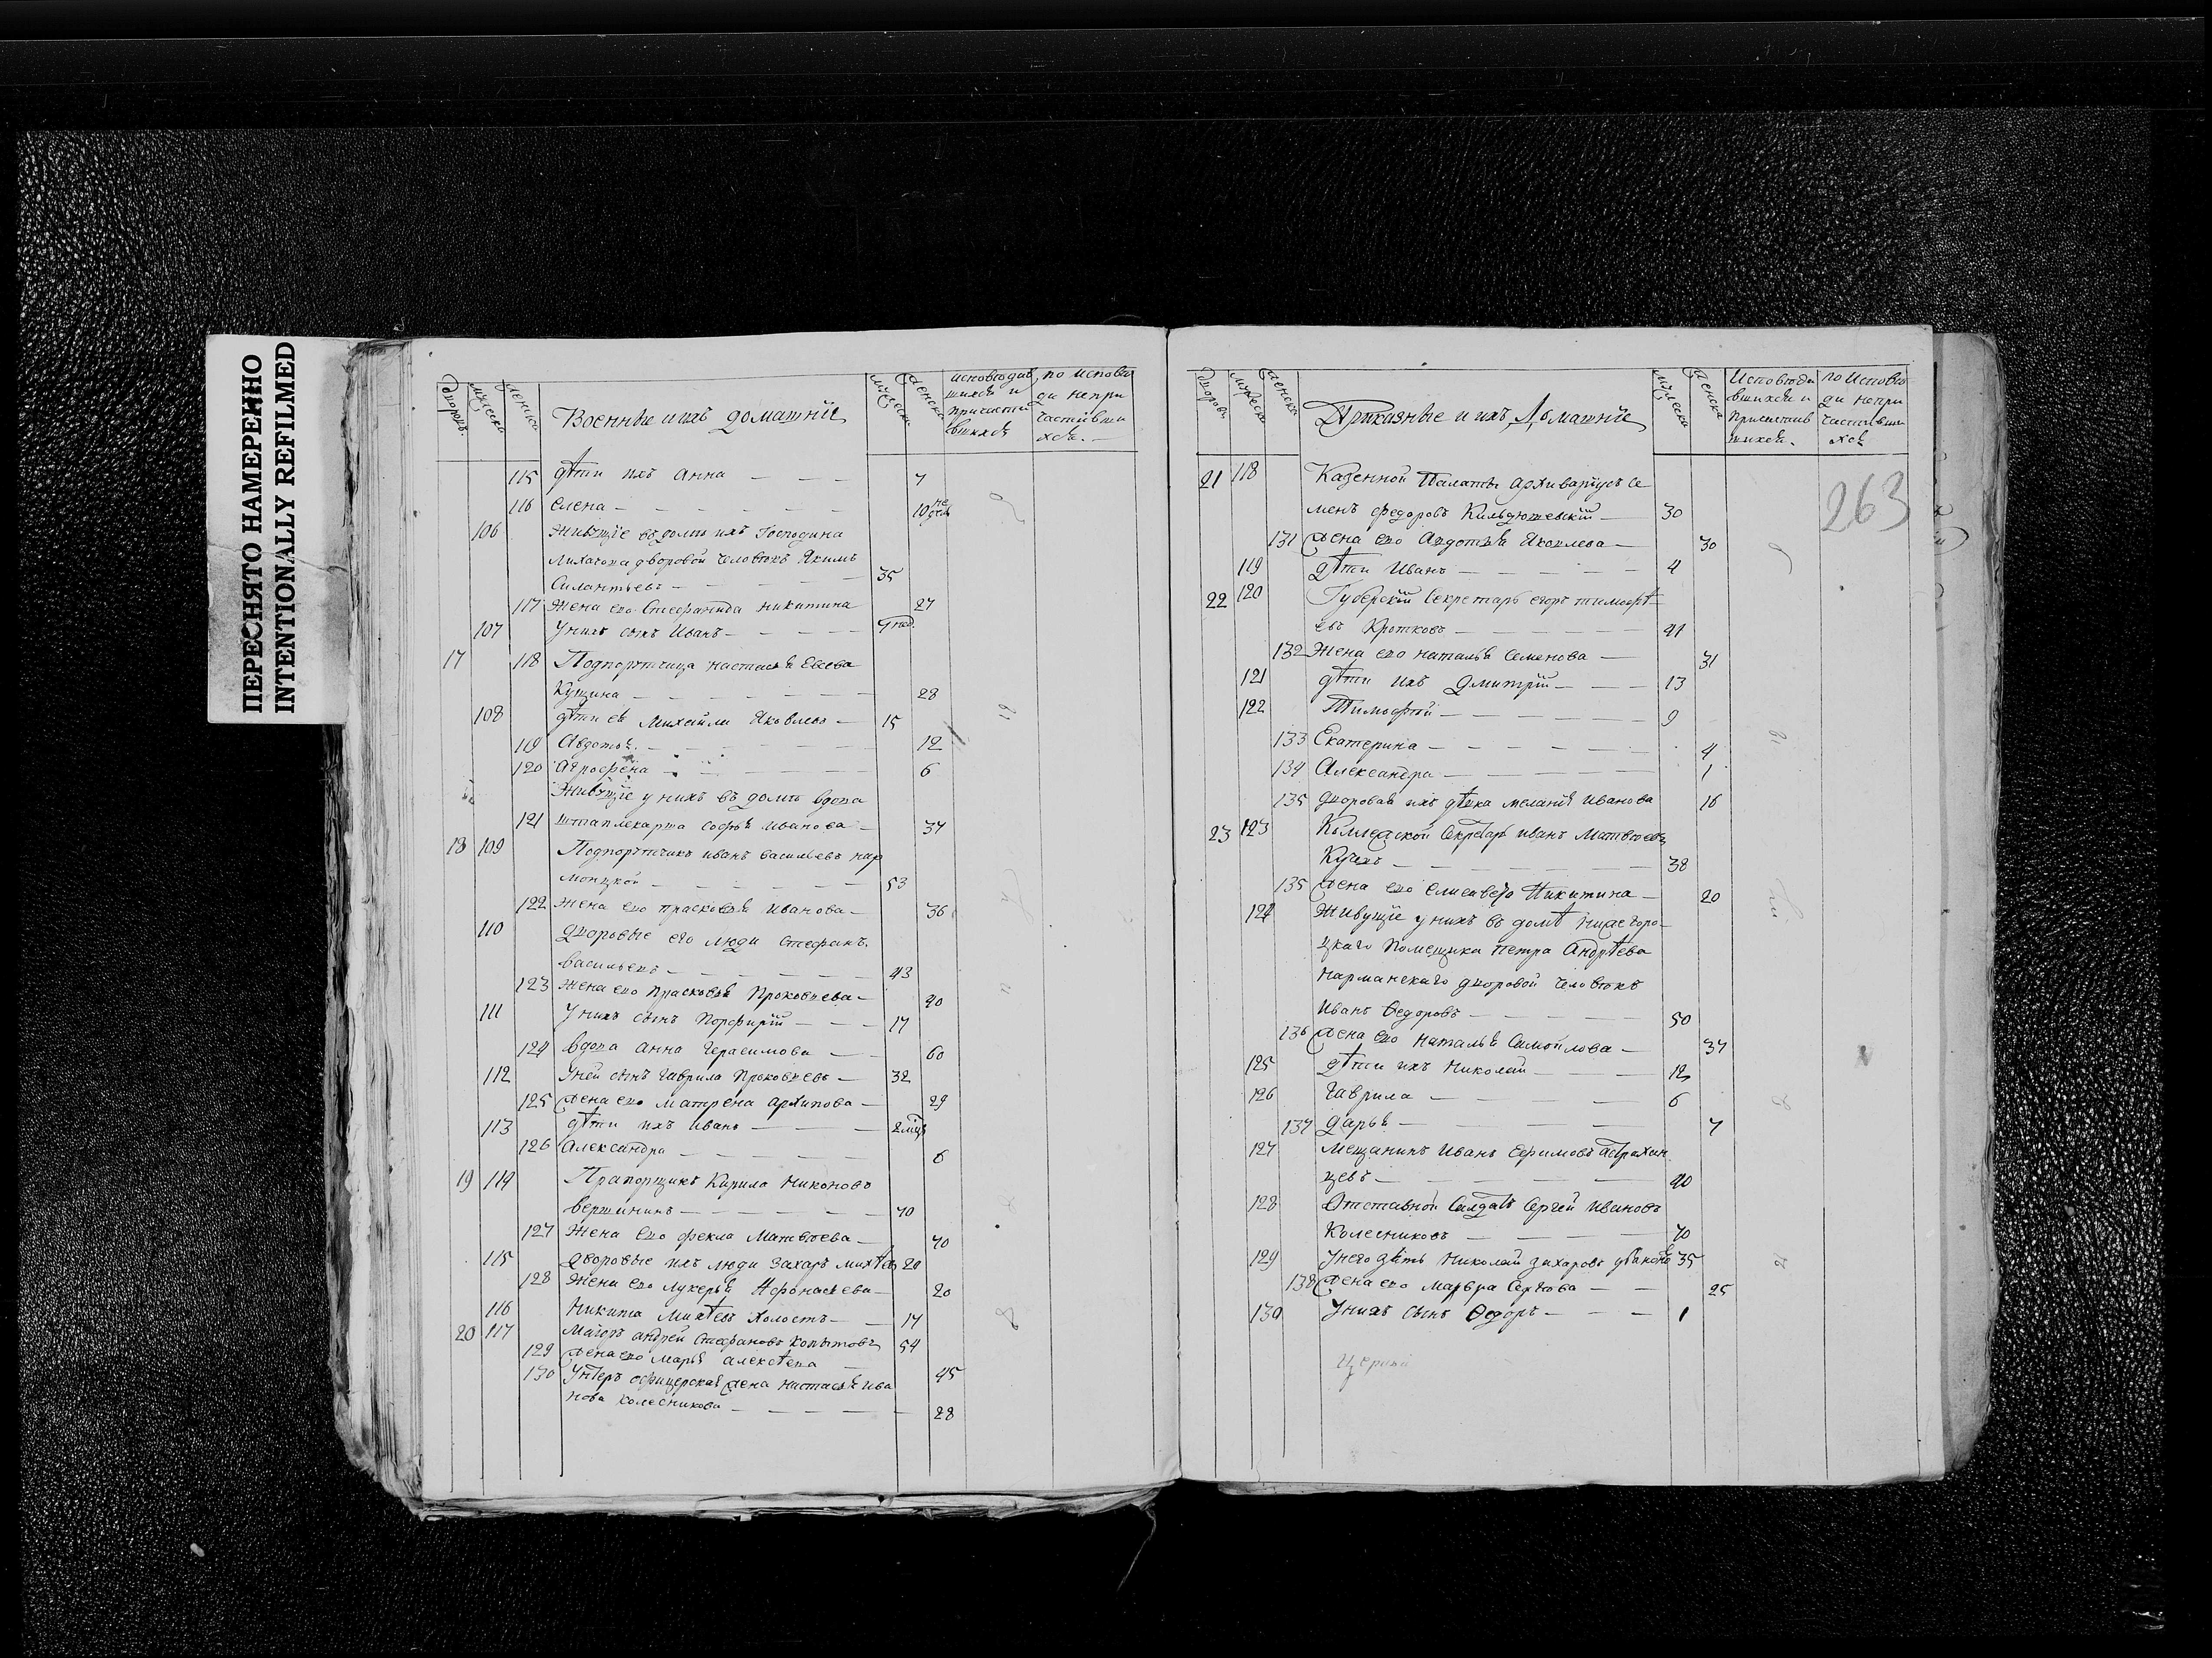 ПЕРЕСНЯТО НАМЕРЕННО
INTENTIONALLY REFILMED
Военные и ихъ домашніе
исповѣдав
шихся и
причасти
вшихся
по исповѣ
ди непри
частивши
хся.
115 дѣти ихъ Анна 7
116 Елена 10 не дель
106 Живущіе въ домѣ ихъ Господина
Лихачова дворовой человѣкъ Якимъ
Силантьевъ 35
117 жена его Стефанида Никитина 27
107 У нихъ сынъ Иванъ
17 118 Подпорутчица Настасья Евсева
Кущина 28
108 дѣти ея Михайли Яковлевъ 15
119 Авдотья 12
120 Агрофена 6
Живущіе у нихъ въ домѣ вдова
121 штаплекарша Софья Иванова 37
18 109 Подпорутчикъ Иванъ Васильевъ Нар
моцкой 53
122 Жена его Прасковья Иванова 36
110 дворовые его люди Стефанъ
Васильевъ 43
123 Жена его Прасковья Прокофьева 40
111 У нихъ сынъ Порфирій 17
124 вдова Анна Герасимова 60
112 У ней сынъ Гаврила Прокофьевъ 32
125 Жена его Матрена Архипова 29
113 дѣти ихъ Иванъ 2 мца
126 Александра 6
19 114 Прапорщикъ Кирила Никоновъ
Вершининъ 70
127 Жена его Фекла Матвѣева 70
115 дворовые ихъ люди Захаръ Михѣевъ 20
128 Жена его Лукерья Афонасьева 20
116 Никита Михѣевъ Холостъ 17
20 117 Маіоръ Андрей Стефановъ Копытовъ 54
129 Жена его Марья Алексѣева 45
130 Унтеръ офицерская жена Настасья Ива
нова Колесникова 28
Приказные и ихъ Домашніе
Исповѣда
вшихся и
Причастив
шихся.
по Исповѣ
ди непри
частивши
хся
263
21 118 Казенной Палаты Архиваріусъ Се
менъ Федоровъ Кильдюшевскій 30
131 Жена его Авдотья Яковлева 30
119 дѣти Иванъ 4
22 120 Губерскій Секретарь Егоръ Тимофѣ
евъ Кротковъ 41
132 Жена его Наталья Семенова 31
121 дѣти ихъ Дмитрій 13
122 Тимофѣй 9
133 Екатерина 4
134 Александра 1
135 дворовая ихъ дѣвка Меланія Иванова 16
23 123 Коллежской Секретарь Иванъ Матвѣевъ
38
135 Жена его Елисавета Никитина 20
124 Живущіе у нихъ въ домѣ Нижегоро
цкаго Помещика Петра Андрѣева
Нарманскаго дворовой человѣкъ
Иванъ Ѳедоровъ 50
136 Жена его Наталья Самойлова 37
125 дѣти ихъ Николай 12
126 Гаврила 6
137 Дарья 7
127 Мещанинъ Иванъ Ефимовъ Астрахан
цевъ 40
128 Отставной Салдатъ Сергей Ивановъ
Колесниковъ 70
129 У него зять Николай Захаровъ 35
138 Жена его Марфа Сергѣева 25
130 У нихъ сынъ Ѳедоръ 1